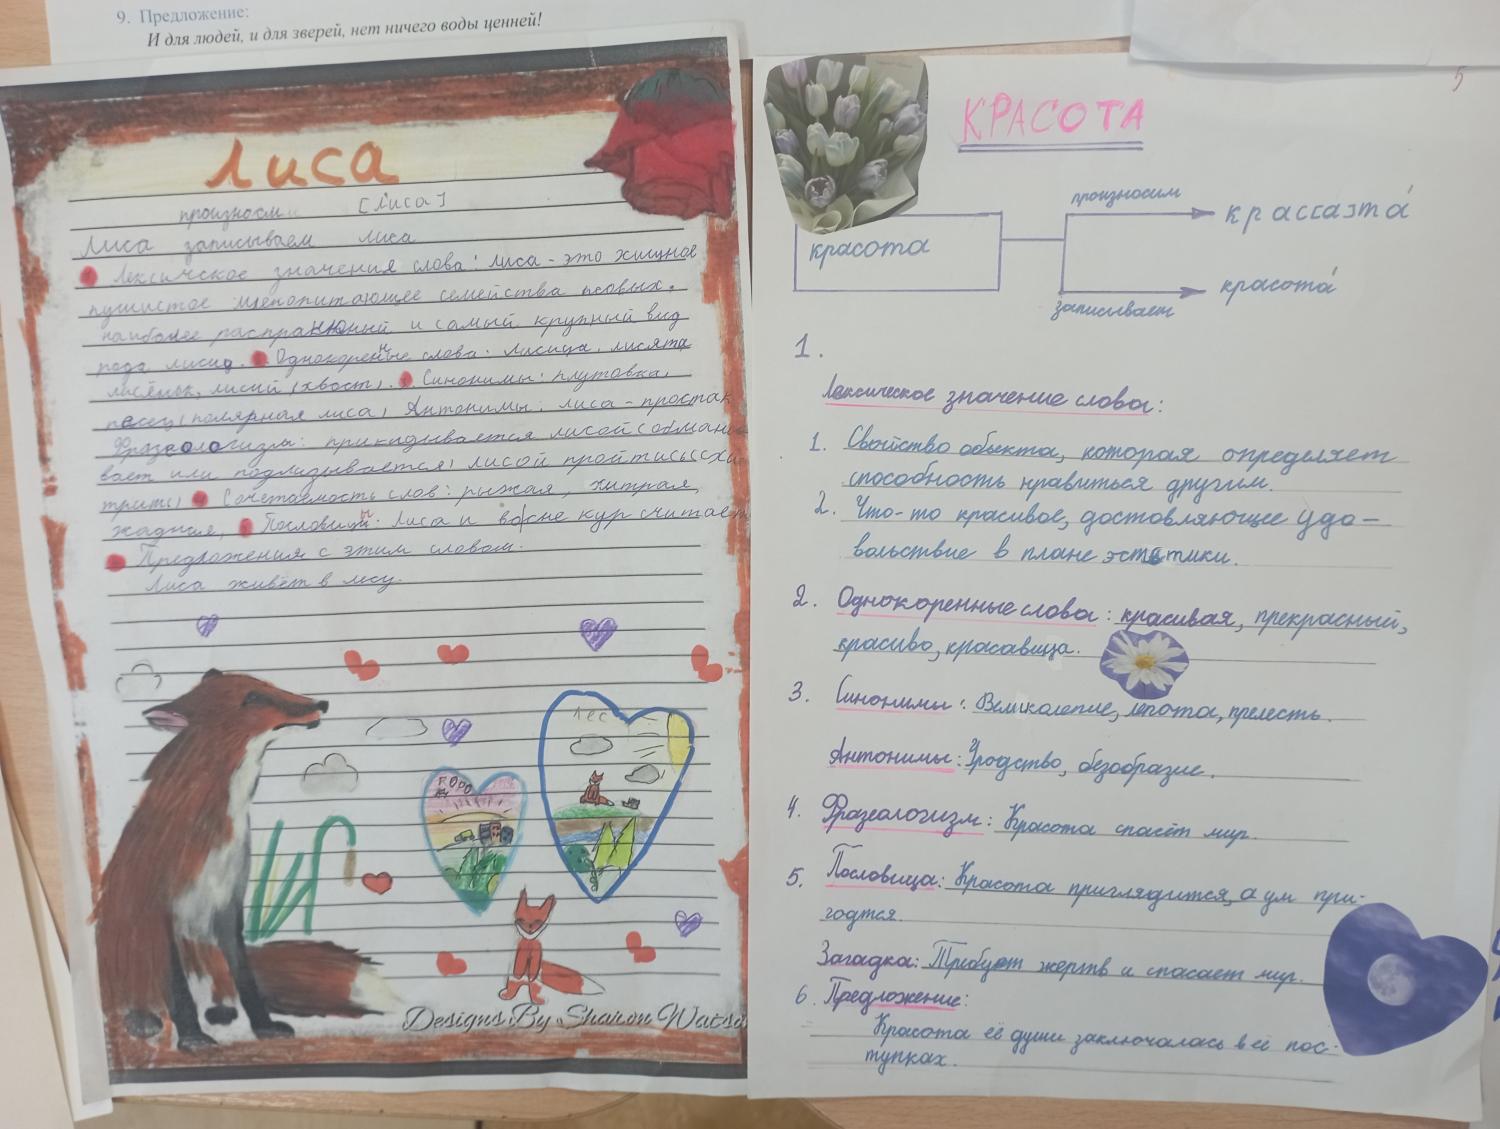 9. Предложение:
И для людей, и для зверей, нет ничего воды ценней!
Лиса
произносм [лиса]
Лиса записываем лиса
Лексичское значения слова: лиса - это хищное
пушистое млепопитающее семейства псовых.
наиболее распранюный и самый крупный вид
рода лисиц. Однокоренные слова: лисица, лисята
лисёнык, лисий (хвост). Синонимы: плутовка,
песец (полярная лиса) Антонимы: лиса - простак
Фразеологизмы: прикидывается лисой (обманы
вает или подлизывается) лисой пройти (схи
трить) Сочетаемость слов: рыжая, хитрая,
жадная, Пословицы: Лиса и во сне кур считает
Предложения с этим словом.
Лиса живёт в лесу.
лес
горо
Designs By Sharon Watso
5
КРАСОТА
произносим
красота
крассазта́
красота́
записывает
1.
Лексическое значение слова:
1. Свойство объекта, которая определяет
способность нравиться другим.
2. Что-то красивое, достовляющее удо-
вольствие в плане эстетики.
2. Однокоренные слова: красивая, прекрасный,
красиво, красавица.
3. Синонимы: Великолепие, лепота, прелесть.
Антонимы: Уродство, безобразие.
4. Фразеологизм: Красота спасёт мир.
5. Пословица: Красота приглядится, а ум при-
годтся.
Загадка: Требует жертв и спасает мир.
6. Предложение:
Красота её души заключалась в её пос-
тупках.